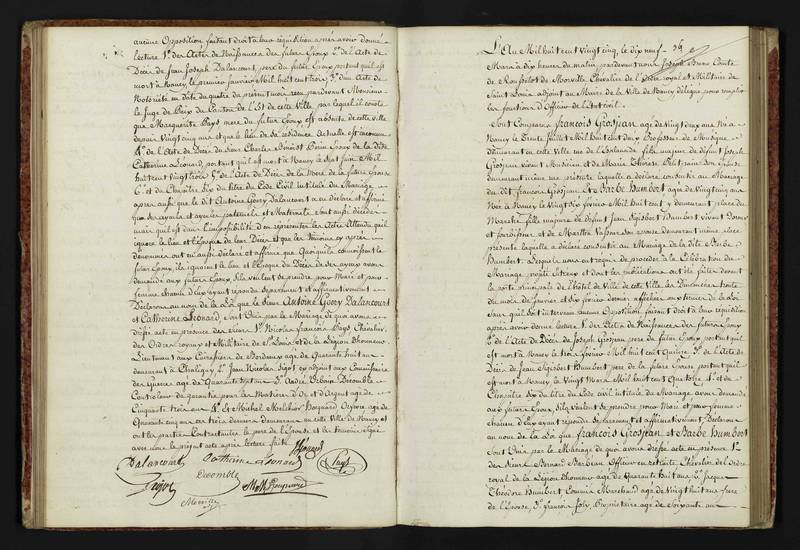 aucune Opposition faisant droit à leur réquisition après avoir donné
lecture 1° des Actes de Naissances des futurs Epoux 2° de l'Acte de
Décès de Jean Joseph Dalancourt, père du futur Epoux portant qu'il est
mort à Nancy, le premier janvier Mil huit cent trois 3° d'un Acte de
Notoriété en Date du quatre du présent mois reçu pardevant Monsieur
le Juge de Paix du Canton de l'Est de cette Ville par lequel il conste
que Marguerite Pays mère du futur Epoux est absente de cette ville
depuis vingt cinq ans et que le lieu de sa résidence Actuelle est inconnu
4° de l'Acte de Décès du sieur Charles Benoist
Catherine Léonard, portant qu'il est mort à Nancy le sept Juin Mil
huit cent vingt trois 5° de l'Acte de Décès de la Mère de la future Epouse
6° et du Chapitre six du titre du Code Civil Intitulé du Mariage
après aussi que le dit Antoine Geory Dalancourt a eu déclaré et affirmé
que ses ayeuls et ayeules paternels et Maternels étant aussi décédés
mais qu'il est dans l'impossibilité d'en représenter les Actes Attendu qu'il
ignore le lieu et l'époque de leur Décès et que les témoins cy après
dénommés ont eu aussi déclaré et affirmé que Quoiqu'ils connaissent le
futur Epoux, ils ignorent le lieu et l'époque du Décès de ses ayeux avons
demandé aux futurs Epoux, s'ils veulent se prendre pour Mari et pour
femme chacun d'eux ayant répondu séparément et affirmativement
Déclarons au nom de la Loi que le sieur Antoine Geory Dalancourt
et Catherine Léonard, sont Unis par le Mariage de quoi avons
dressé acte en présence des sieurs 1° Nicolas François Pays Chevalier
des Ordres royaux et Militaire de St Louis et de la Légion Dhonneur
Lieutenant aux Cuirassiers de Bordeaux agé de Quarante huit ans
demeurant à Chaligny 2° Jean Nicolas Pigot ex adjoint aux Commissaires
des Guerres agé de Quarante sept ans 3° André Decombe
Contrôleur de garantie pour les Matières D'or et D'argent agé de
Cinquante trois ans 4° et Michel Melchior Bougnard agé de
Quarante cinq ans les trois derniers demeurans en cette Ville de Nancy et
ont les parties Contractantes le père de l'Epouse et les témoins signé
avec nous le présent acte après lecture faite
Dalancourt Catherine Léonard Pays
Pigot Decomble
L'An Mil huit cent vingt cinq, le dix neuf
Mars à dix heures du matin pardevant nous Joseph Bruno Comte
de Morville Chevalier de l'Ordre royal et Militaire de
Saint Louis adjoint au Maire de la Ville de Nancy délégué pour remplir
les fonctions d'Officier de l'Etat civil
Sont Comparus François Grosjean agé de Vingt deux ans Né à
Nancy le trente Juillet Mil huit cent deux Professeur de Musique
demeurant en cette Ville rue de l'Esplanade fils majeur de défunt Joseph
Grosjean vivant Musicien et de Marie Thérèse Petitjean son épouse
demeurant même rue présente laquelle a déclaré consentir au Mariage
du dit François Grosjean Et Barbe Humbert agée de Vingt cinq ans
Née à Nancy le Vingt six février Mil huit cent y demeurant place du
Marché fille majeure de défunt Jean Sigisbert Humbert vivant
et de Marthe son épouse demeurant même place
présente laquelle a déclaré consentir au Mariage de la dite Barbe
Humbert Lesquels nous ont requis de procéder à la Célébration du
Mariage projeté entreux et dont les publications ont été faites devant
la porte principale de l'hôtel de Ville de cette Ville les Dimanches trente
du mois de février et six février dernier affichées aux termes de la Loi
sans qu'il soit intervenu aucune Opposition, faisant droit à leur réquisition
après avoir donné lecture 1° des Actes de Naissances des futurs Epoux
2° de l'Acte de Décès de Joseph Grosjean père du futur Epoux portant qu'il
est mort à Nancy le trois février Mil huit cent Quinze 3° de l'Acte de
Décès de Jean Sigisbert Humbert père de la future Epouse portant qu'il
est mort à Nancy le Vingt Mars Mil huit cent Quatorze 4° et du
Chapitre Six du titre du Code civil intitulé du Mariage, avons demandé
aux futurs Epoux, s'ils veulent se prendre pour Mari et pour femme
chacun d'eux ayant répondu séparément et affirmativement Déclarons
au nom de la Loi que François Grosjean et Barbe Humbert
Sont Unis par le Mariage de quoi avons dressé acte en présence 1°
des sieurs Bernard Officier en retraite Chevalier de l'ordre
royal de la Légion Dhonneur agé de Quarante huit ans 2° Jacques
Théodore Humbert Commis Marchand agé de Vingt huit ans frère
de l'Epouse, 3° François Joly, Propriétaire agé de soixante ans